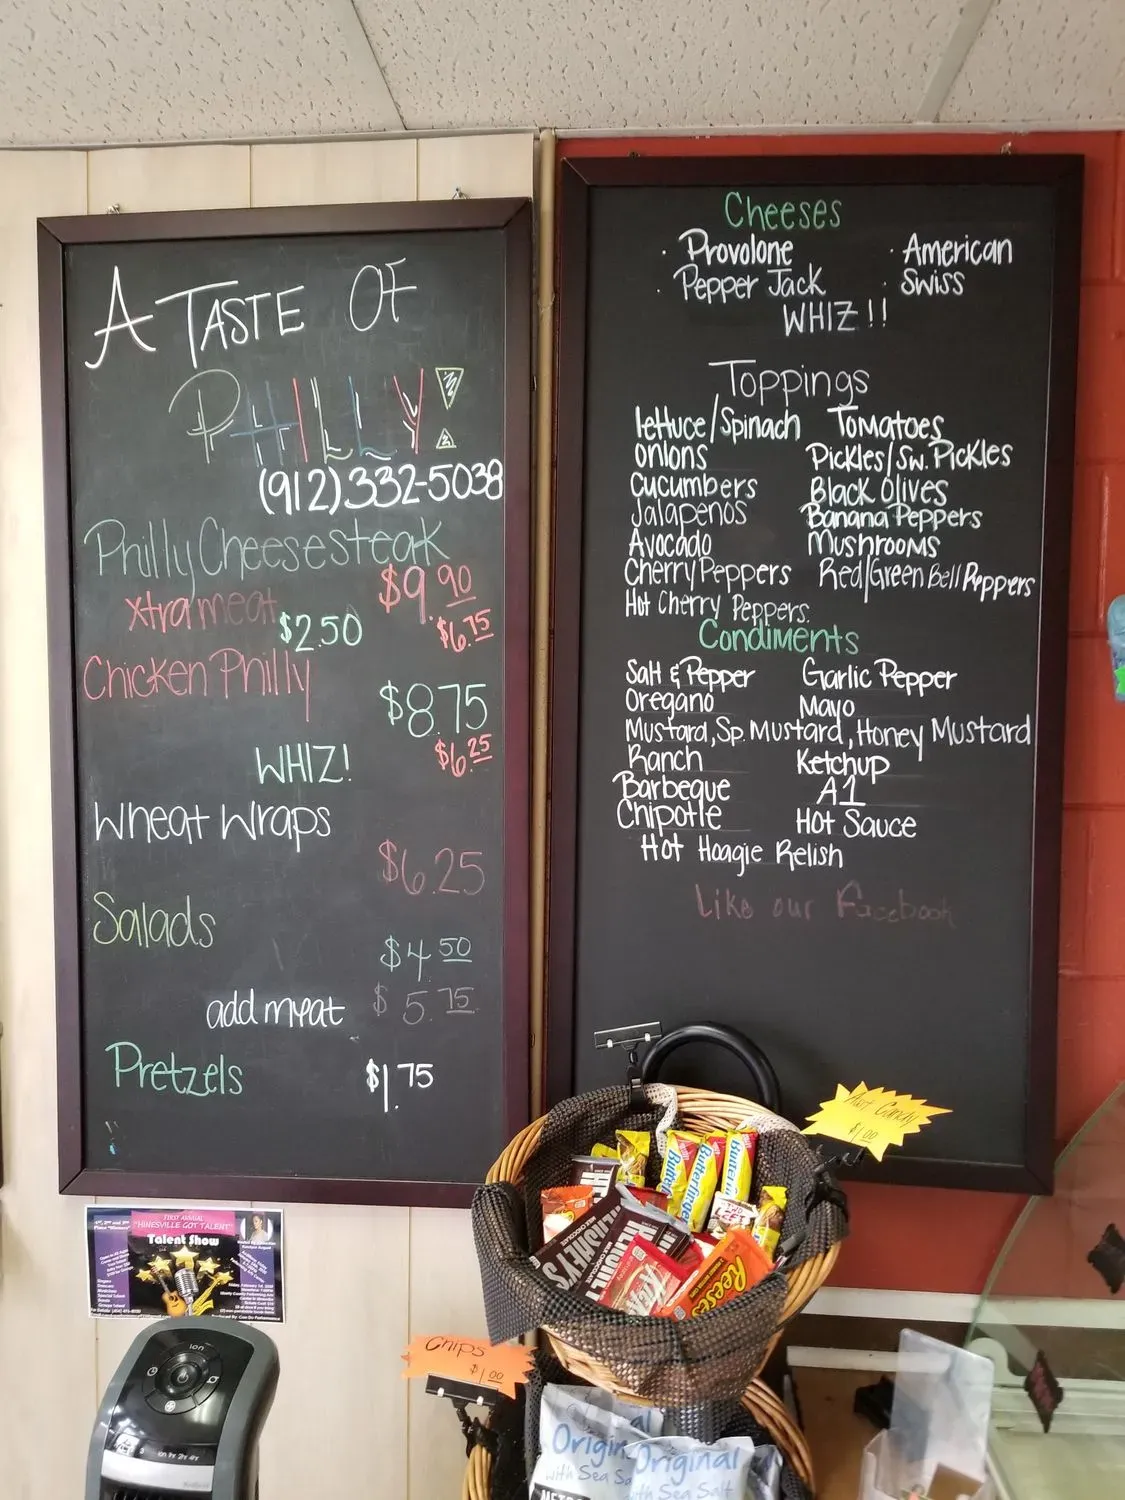 A TASTE OF
PHILLY!
(912)332-5038
Philly Cheesesteak
$9.90
xtra meat $2.50 $6.75
Chicken Philly
$8.75
WHIZ! $6.25
Wheat Wraps
$6.25
Salads
$4.50
add meat $5.75
Pretzels $1.75
Cheeses
· Provolone · American
· Pepper Jack · Swiss
WHIZ!!
Toppings
lettuce/Spinach Tomatoes
onions Pickles/Sw. Pickles
Cucumbers Black Olives
Jalapenos Banana Peppers
Avocado Mushrooms
Cherry Peppers Red/Green Bell Peppers
Hot Cherry Peppers.
Condiments
Salt & Pepper Garlic Pepper
Oregano Mayo
Mustard, Sp. Mustard, Honey Mustard
Ranch Ketchup
Barbeque A1
Chipotle Hot Sauce
Hot Hoagie Relish
Like our Facebook
Candy
$1.00
Butterfinger
HERSHEY'S
Reese's
FIRST ANNUAL
"HINESVILLE GOT TALENT"
Talent Show
ion
Chips
$1.00
Original
with Sea Salt
Original
with Sea Salt